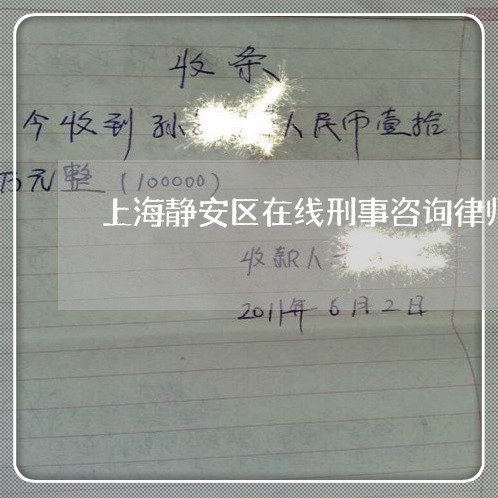 收条
今收到孙 人民币壹拾
万元整(100000)
上海静安区在线刑事咨询律师
收款人
2011年6月2日